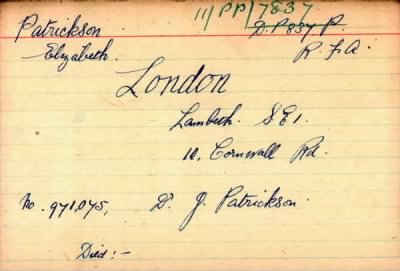 11/PP/7837
Patrickson D.P837 P.
Elizabeth. R.F.A.
London
Lambeth. S.E.1.
10, Cornwall Rd.
No. 971,075, Dr J. Patrickson.
Died:-